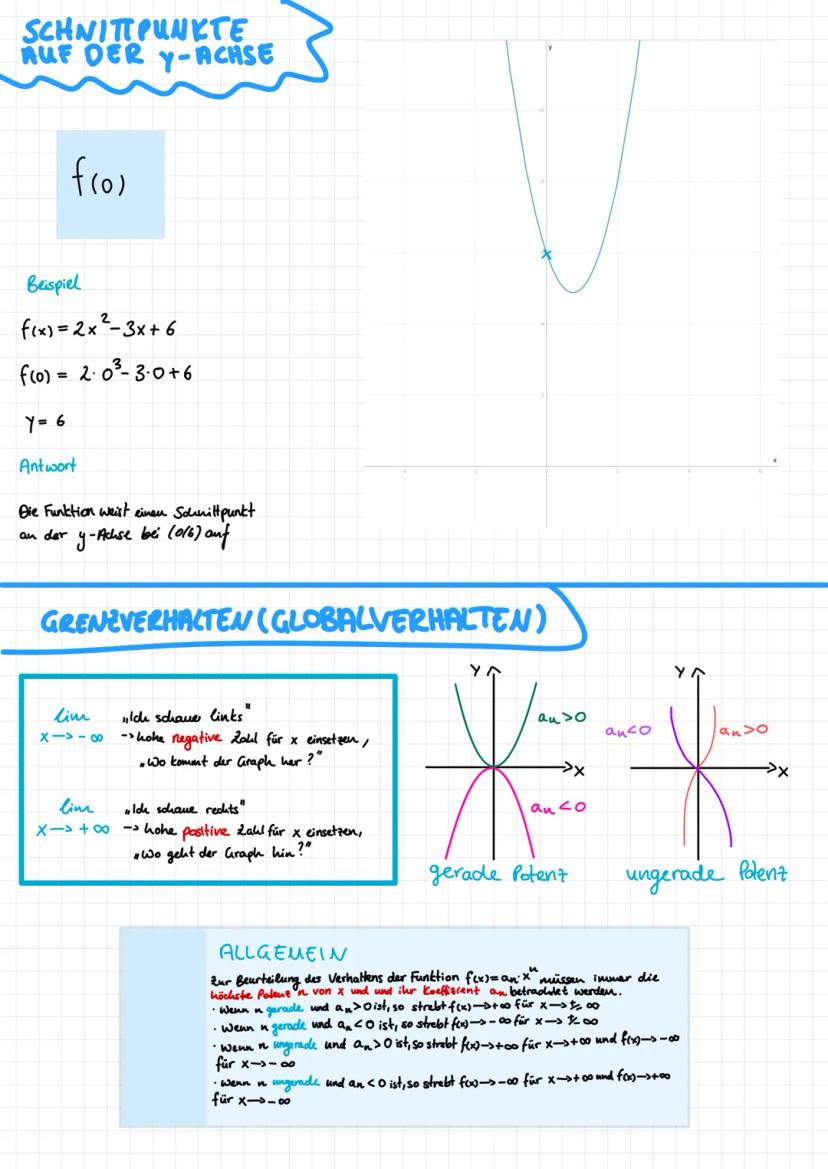 SCHNITTPUNKTE
AUF DER y-ACHSE
f(0)
Beispiel
f(x) = 2x²-3x+6
f(0) = 2·0³-3·0+6
y = 6
Antwort
Die Funktion weist einen Schnittpunkt
an der y-Achse bei (0/6) auf
y
10
8
4
2
-4 -2 0 2 4 6
x
GRENZVERHALTEN (GLOBALVERHALTEN)
lim „Ich schaue links"
x→-∞ -> hohe negative Zahl für x einsetzen,
„Wo kommt der Graph her?"
lim „Ich schaue rechts"
x→+∞ -> hohe positive Zahl für x einsetzen,
„Wo geht der Graph hin?"
y
an>0
x
an<0
gerade Potenz
y
an<0 an>0
x
ungerade Potenz
ALLGEMEIN
Zur Beurteilung des Verhaltens der Funktion f(x)=an·xⁿ müssen immer die
höchste Potenz n von x und und ihr Koeffizient an betrachtet werden.
· Wenn n gerade und an>0 ist, so strebt f(x)→+∞ für x→±∞
· Wenn n gerade und an<0 ist, so strebt f(x)→-∞ für x→±∞
· Wenn n ungerade und an>0 ist, so strebt f(x)→+∞ für x→+∞ und f(x)→-∞
für x→-∞
· Wenn n ungerade und an<0 ist, so strebt f(x)→-∞ für x→+∞ und f(x)→+∞
für x→-∞